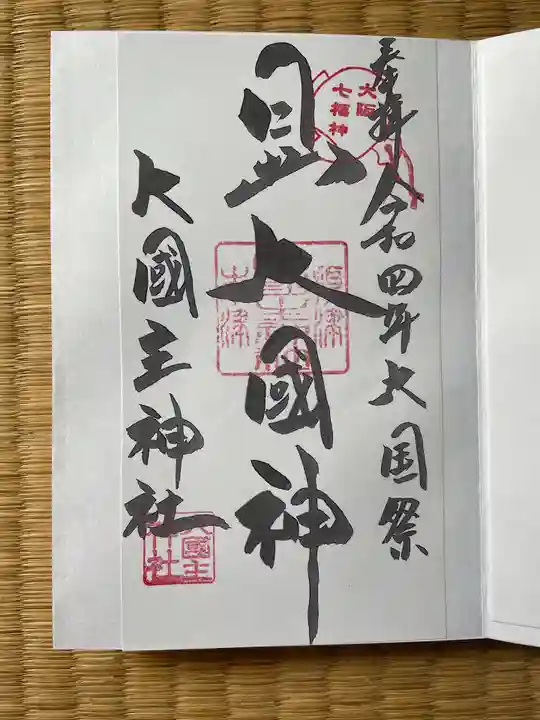 奉拝
令和四年大国祭
大阪
七福神
日出大國神
大國主神社
大國主
神社